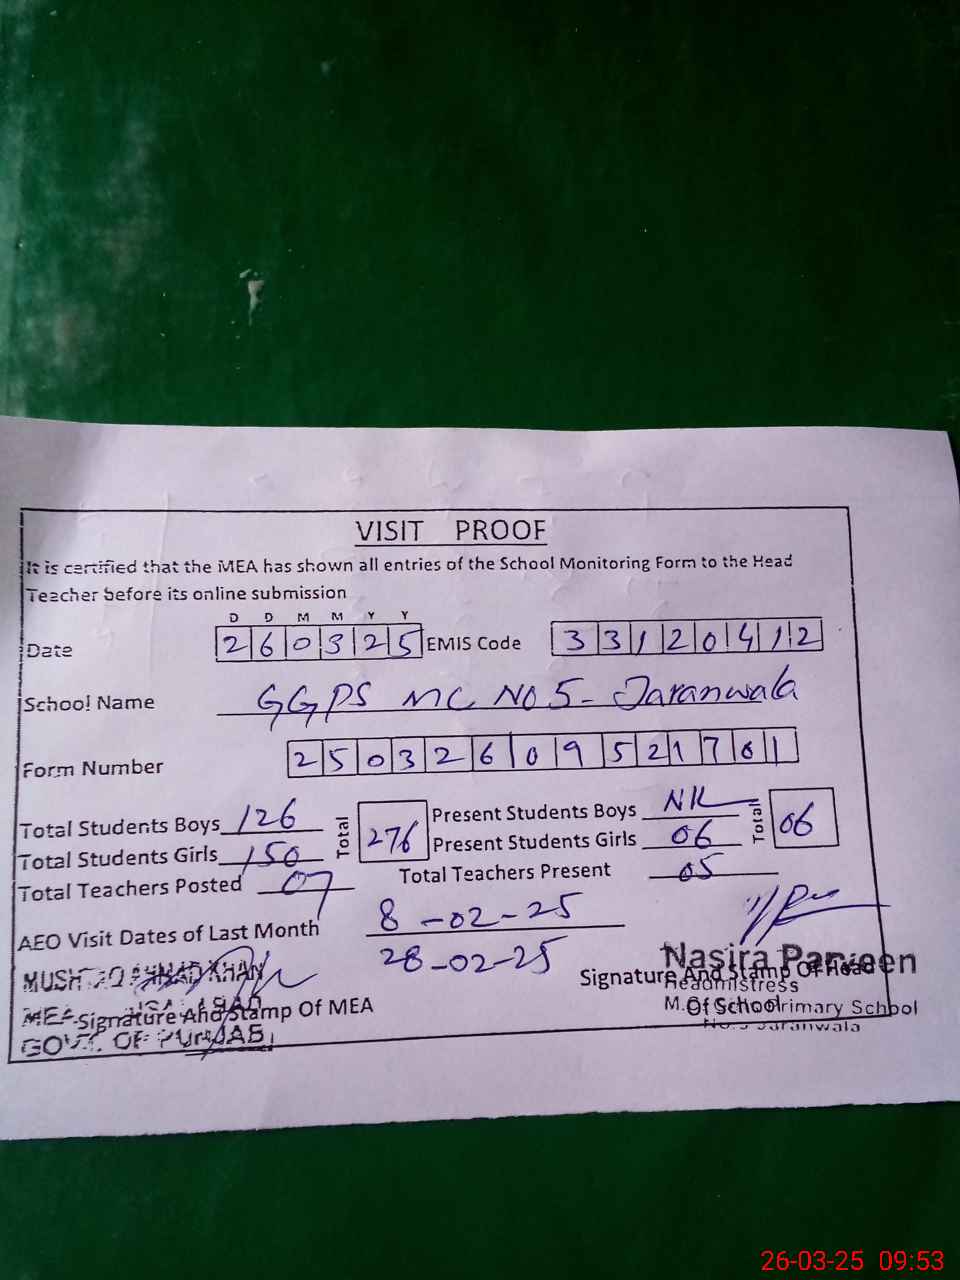 VISIT PROOF
It is certified that the MEA has shown all entries of the School Monitoring Form to the Head
Teacher before its online submission
D D M M Y Y
Date 2 6 0 3 2 5 EMIS Code 3 3 1 2 0 4 1 2
School Name GGPS MC NO 5 - Jaranwala
Form Number 2 5 0 3 2 6 0 9 5 2 1 7 6 1
Total Students Boys 126 Total 276 Present Students Boys Nil Total 06
Total Students Girls 150 Present Students Girls 06
Total Teachers Posted 07 Total Teachers Present 05
AEO Visit Dates of Last Month 8-02-25
28-02-25
MUSHTAQ AHMAD KHAN
MEA
Signature And Stamp Of MEA
GOVT. OF PUNJAB
Nasira Parveen
Signature And Stamp Of Head
Headmistress
Of School
M.C. Primary School
No.5 Jaranwala
26-03-25 09:53